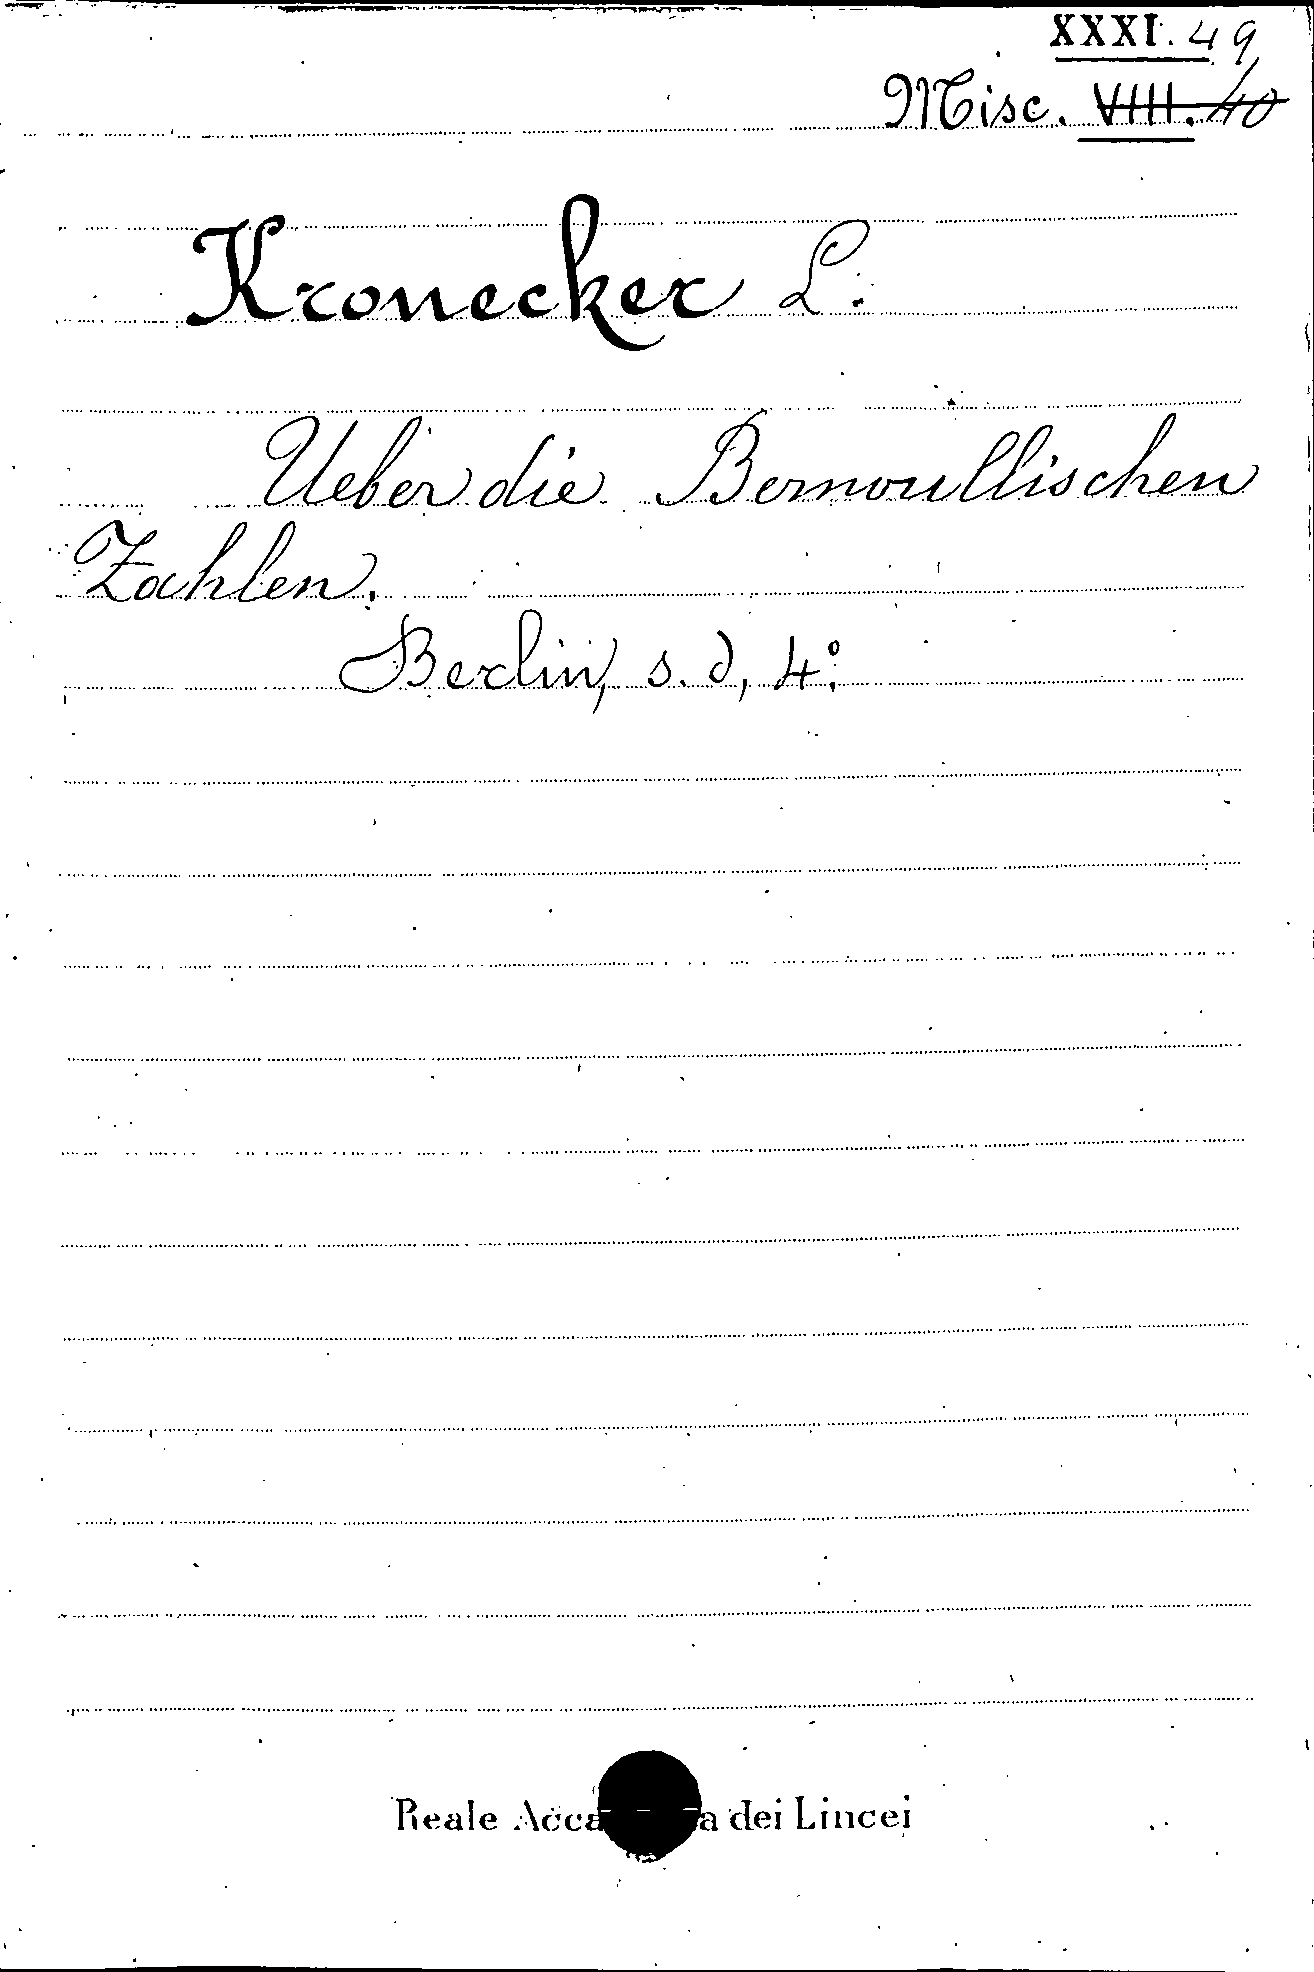 XXXI. 49
Misc. VIII. 40
Kronecker L.
Ueber die Bernoullischen
Zahlen.
Berlin, s. d, 4º.
Reale Acca a dei Lincei